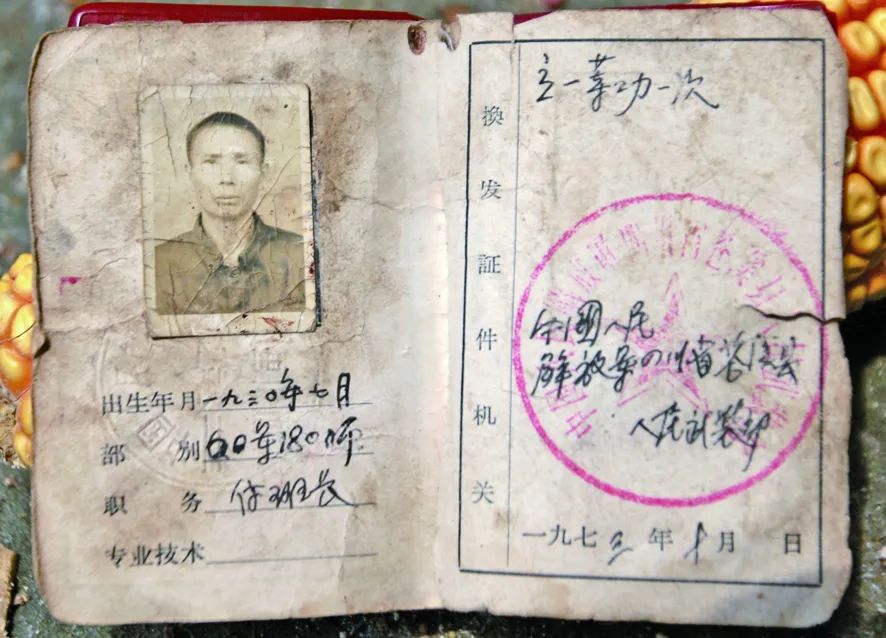 出生年月 一九三0年七月
部 别 60军180师
职 务 付班长
专业技术
換发証件机关
立一等功一次
中國人民
解放军四川省苍溪县
人民武装部
一九七三年十月 日